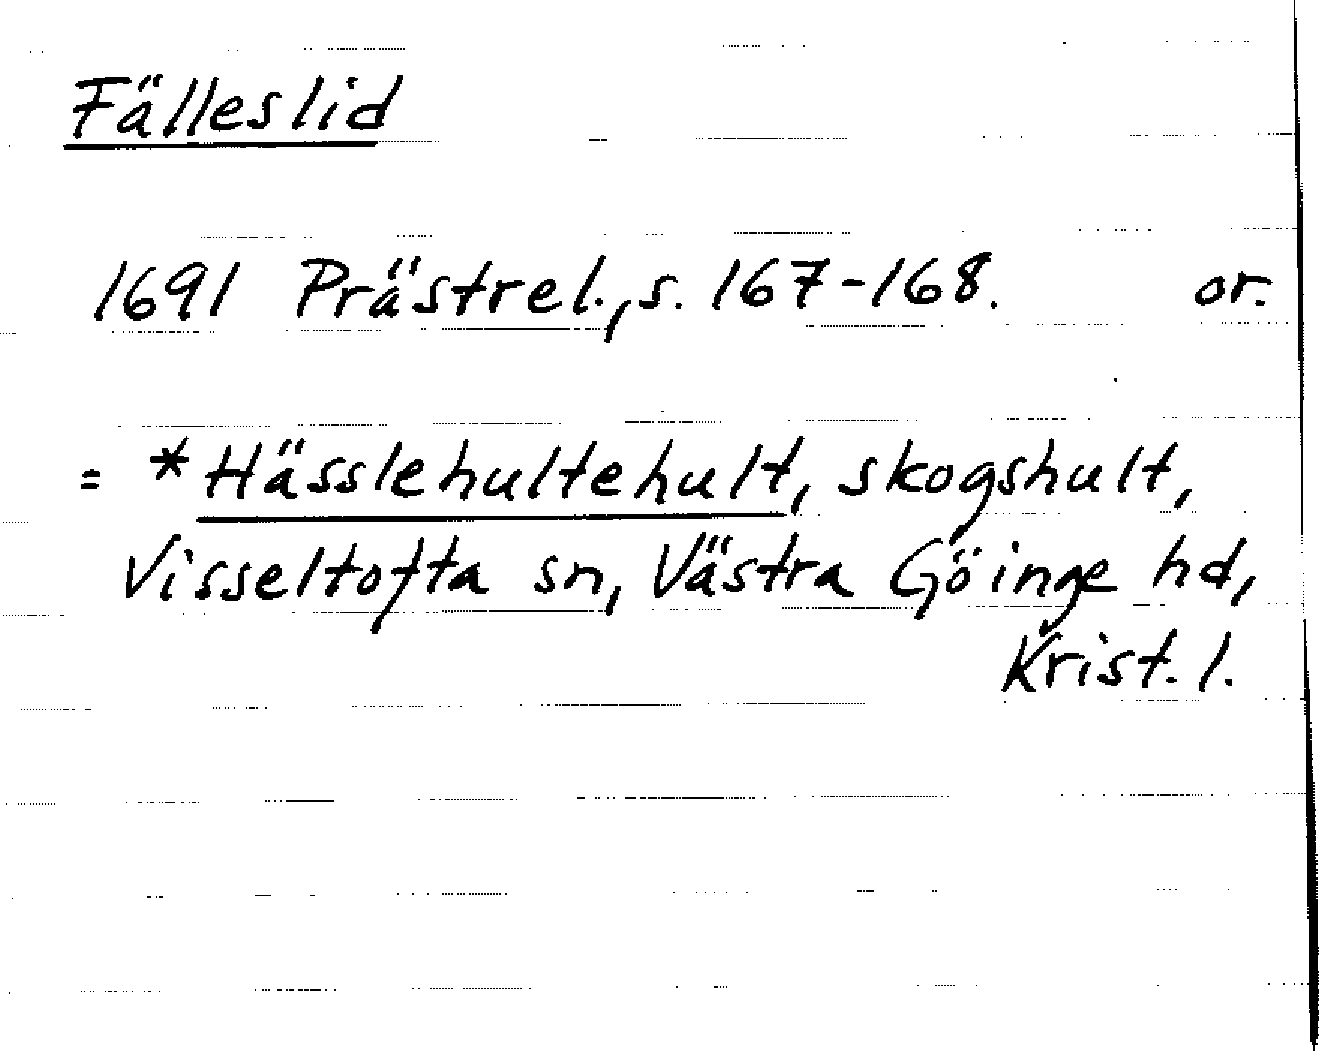 Fälleslid
1691 Prästrel., s. 167-168. or.
= *Hässlehultehult, skogshult,
Visseltofta sn, Västra Göinge hd,
Krist. l.